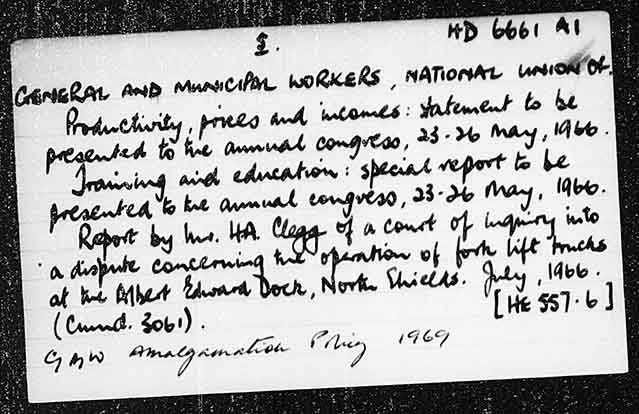 I.
HD 6661 A1
GENERAL AND MUNICIPAL WORKERS, NATIONAL UNION OF.
Productivity, prices and incomes: statement to be
presented to the annual congress, 23-26 May, 1966.
Training and education: special report to be
presented to the annual congress, 23-26 May, 1966.
Report by Mr. HA. Clegg of a court of inquiry into
a dispute concerning the operation of fork lift trucks
at the Albert Edward Dock, North Shields. July, 1966.
(Cmnd. 3061). [HE 557.6]
GMW Amalgamation Policy 1969